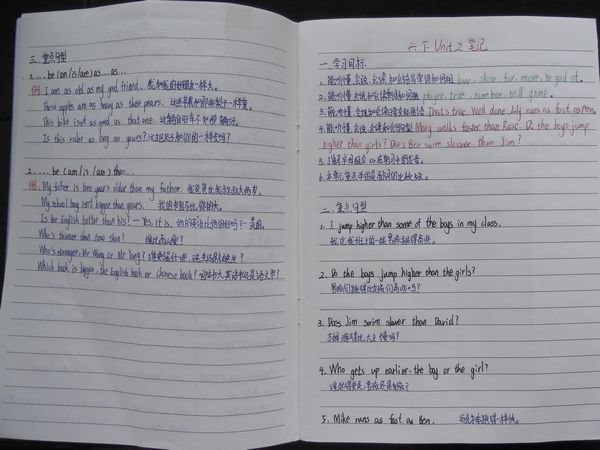 三. 重点句型
1. ... be (am/is/are) as... as...
例: I am as old as my good friend. 我和我的好朋友一样大。
These apples are as heavy as these pears. 这些苹果和那些梨子一样重。
This bike isn't as good as that one. 这辆自行车不如那辆好。
Is this ruler as long as yours? 这把尺子和你的一样长吗?
2. ... be (am/is/are) than...
例: My father is two years older than my father. 我爸爸比我叔叔大两岁。
My school bag isn't bigger than yours. 我的书包不比你的大。
Is her English better than his? - Yes, it is. 她的英语比他的好吗?一是的。
Who's thinner than
Who's stronger, Mr Wang or Mr Yang?
Which book is bigger, the English book or Chinese book? 英语书还是语文书?
六下 Unit 2 笔记
一. 学习目标
1. 能听懂,会说,会读 low, slow, far, more, be good at.
2. 能听懂,会说 player, true, number, ball game.
3. 能听懂,会说 That's true. Well done. Lily runs as fast as Ann.
4. 能听懂,会说,会读 Mary walks faster than Rose. Do the boys jump
higher than girls? Does Ben swim slower than Jim?
5. 了解字母组合
6.
二. 重点句型
1. I jump higher than some of the boys in my class.
我比我班上的一些男孩跳得高。
2. Do the boys jump higher than the girls?
男孩们跳得比女孩们高些吗?
3. Does Jim swim slower than David?
吉姆游得比大卫慢吗?
4. Who gets up earlier, the boy or the girl?
谁起得更早,男孩还是女孩?
5. Mike runs as fast as Ben. 迈克和本跑得一样快。